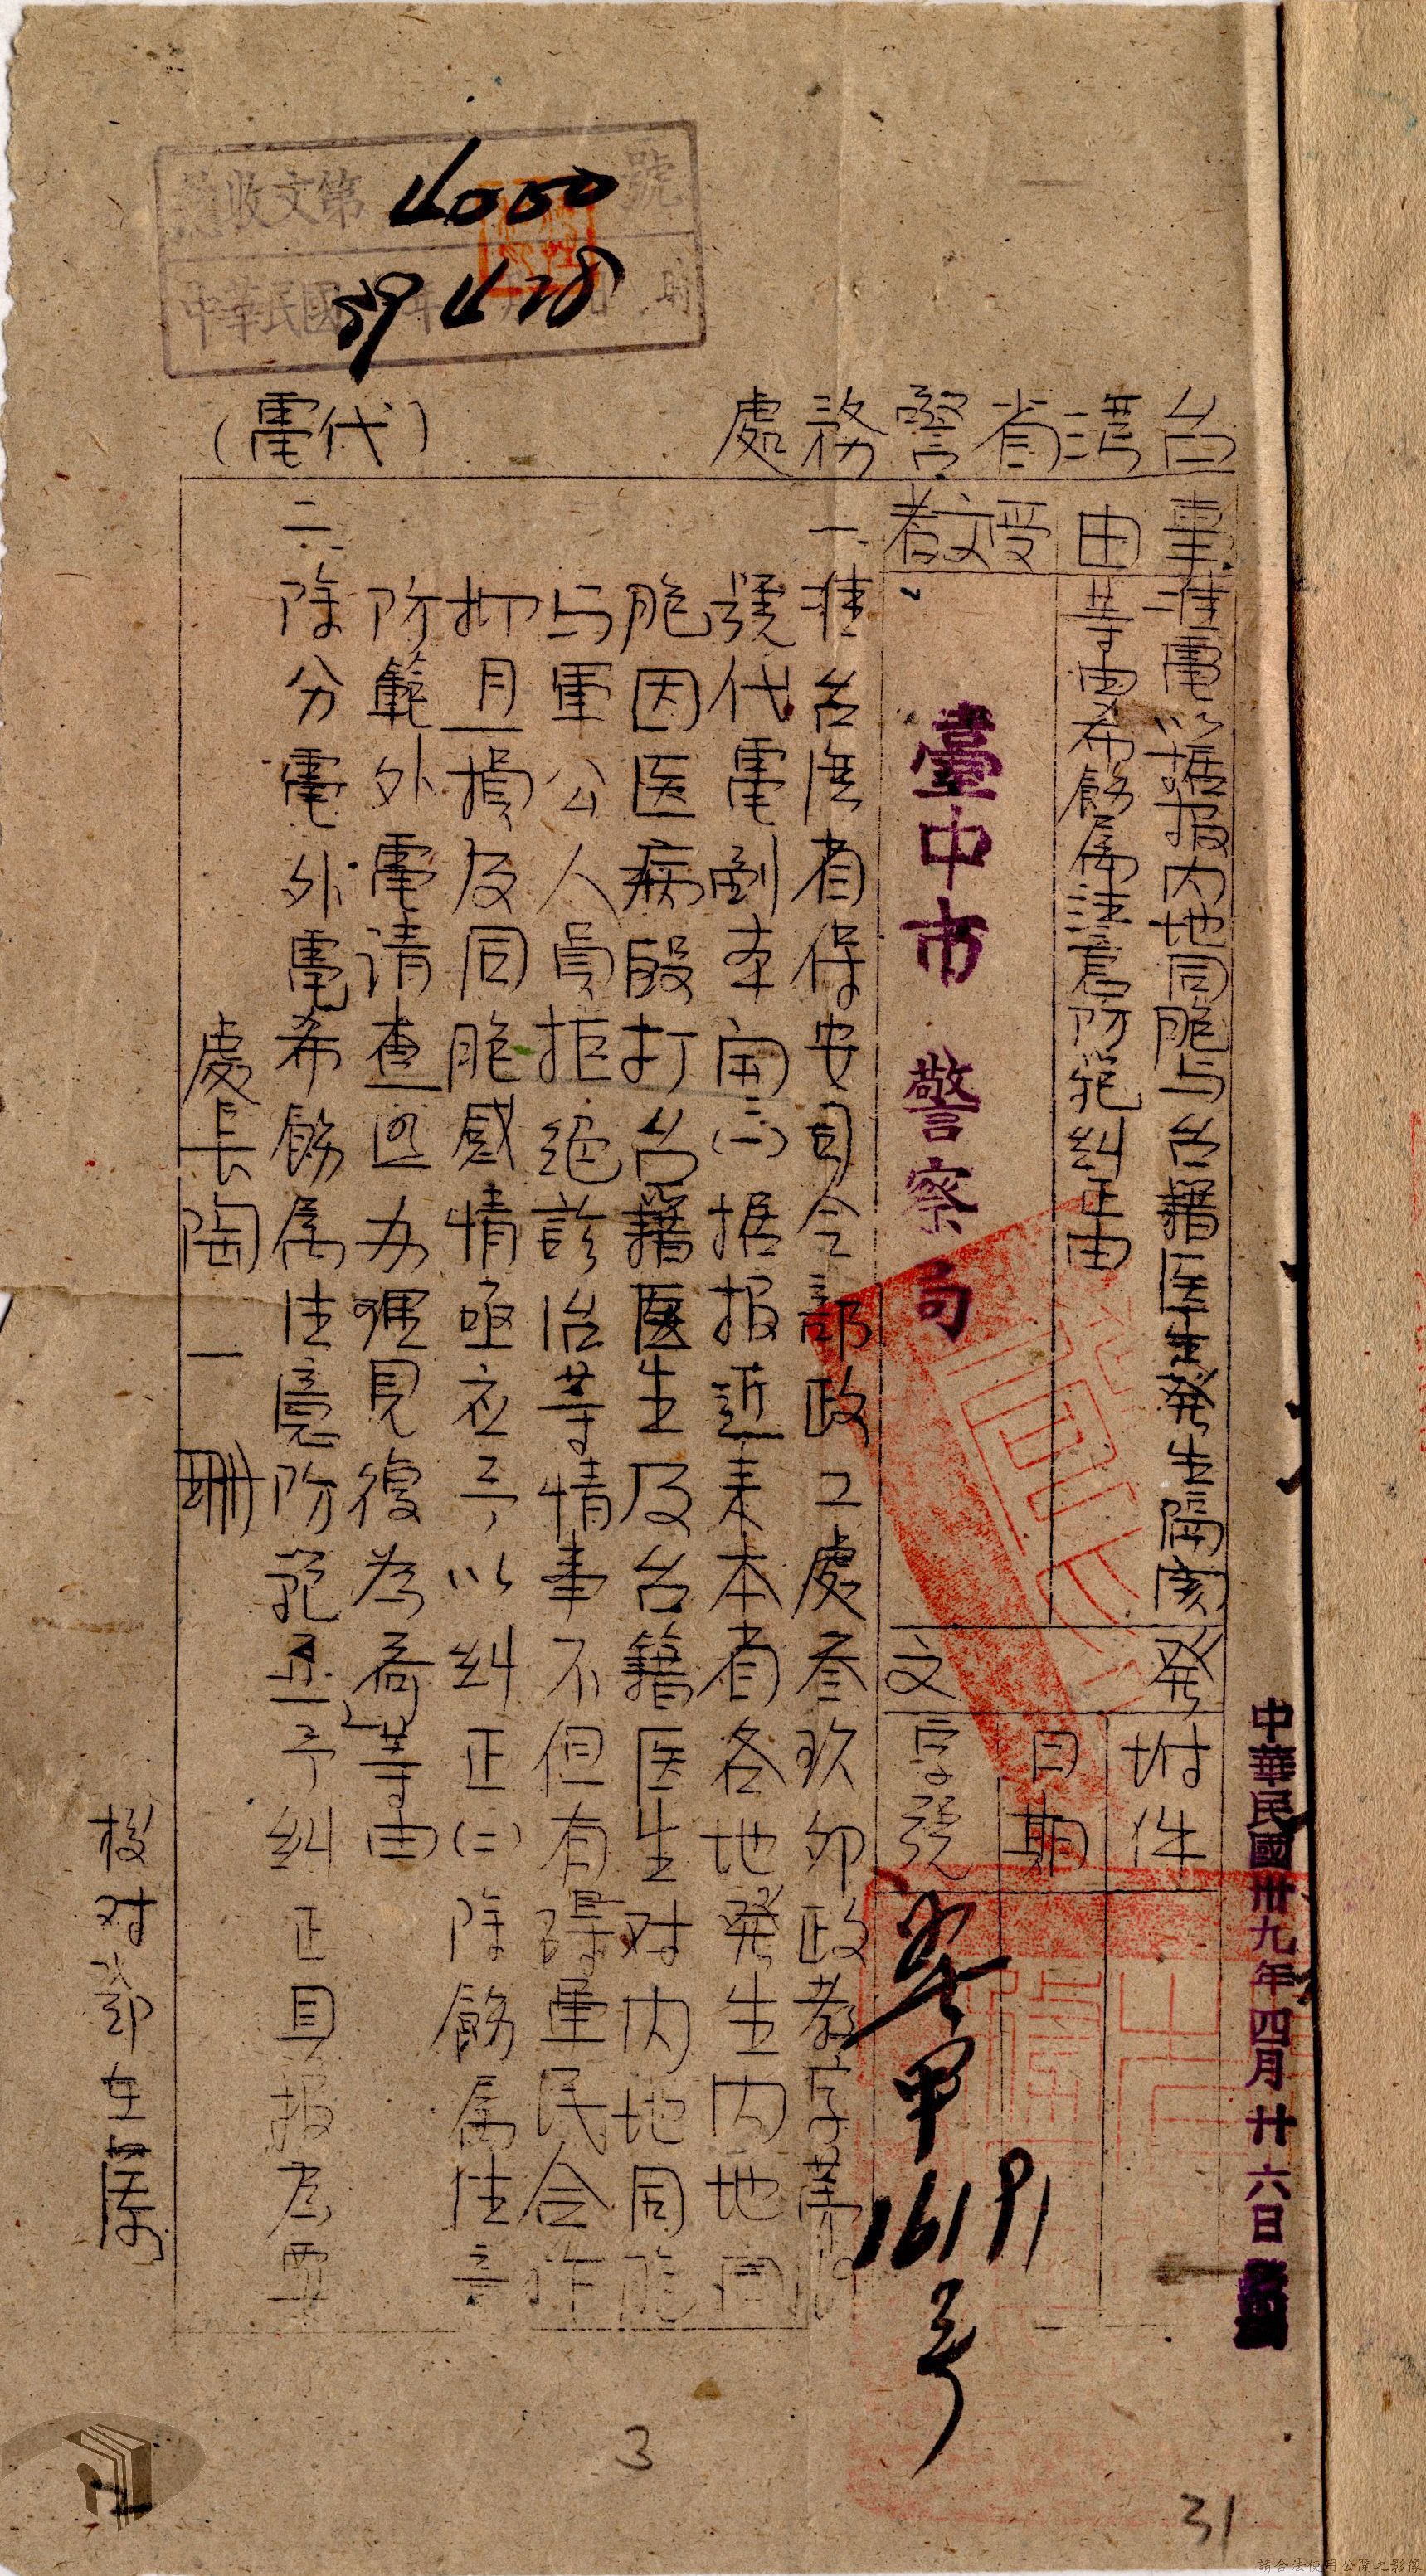 總收文第4050號
中華民國39年4月28日 時
台灣省警務處
(代電)
事由
准電以據报内地同胞与台籍医生発生隔閡
等由希飭属注意防范糾正由
受文者
臺中市警察局
発文
附件
日期
字號
中華民國卅九年四月廿六日
甲16191号
一、准台湾省保安司令部政工處叁玖卯政教字第
號代電副本開(一)据报近来本省各地発生内地同
胞因医病殴打台籍医生及台籍医生对内地同胞
与軍公人員拒绝診治等情事不但有碍軍民合作
抑且損及同胞感情亟应予以糾正(二)除飭属注意
防範外電请查照办理見復為荷」等由
二、除分電外電希飭属注意防范並予糾正具报為要
處長陶一珊
校对
3
31
請合法使用公開之影像